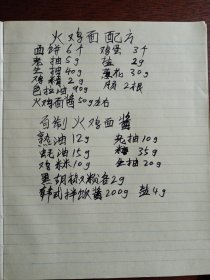 火鸡面配方
面饼6个 鸡蛋3个
老抽5g 盐2g
生抽40g 葱花30g
鸡精2g 肠2根
色拉油90g
火鸡面酱50g左右
自制火鸡面酱
熟油12g 老抽10g
蚝油15g 糖35g
鸡精10g 生抽20g
黑胡椒粉各2g
韩式拌饭酱200g 盐4g